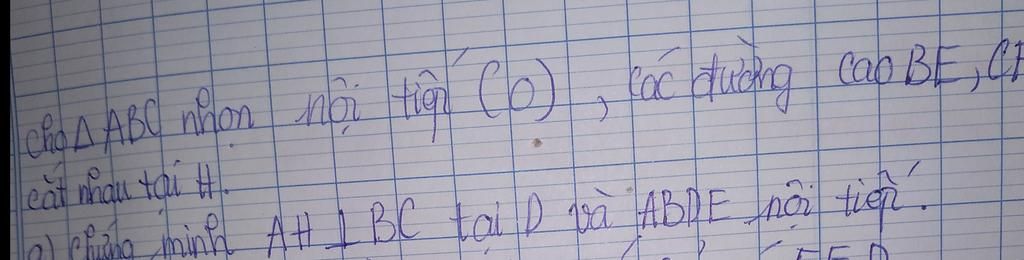 cho △ABC nhọn nội tiếp (O), các đường cao BE, CF
cắt nhau tại H.
a) chứng minh AH ⊥ BC tại D và ABDE nội tiếp.